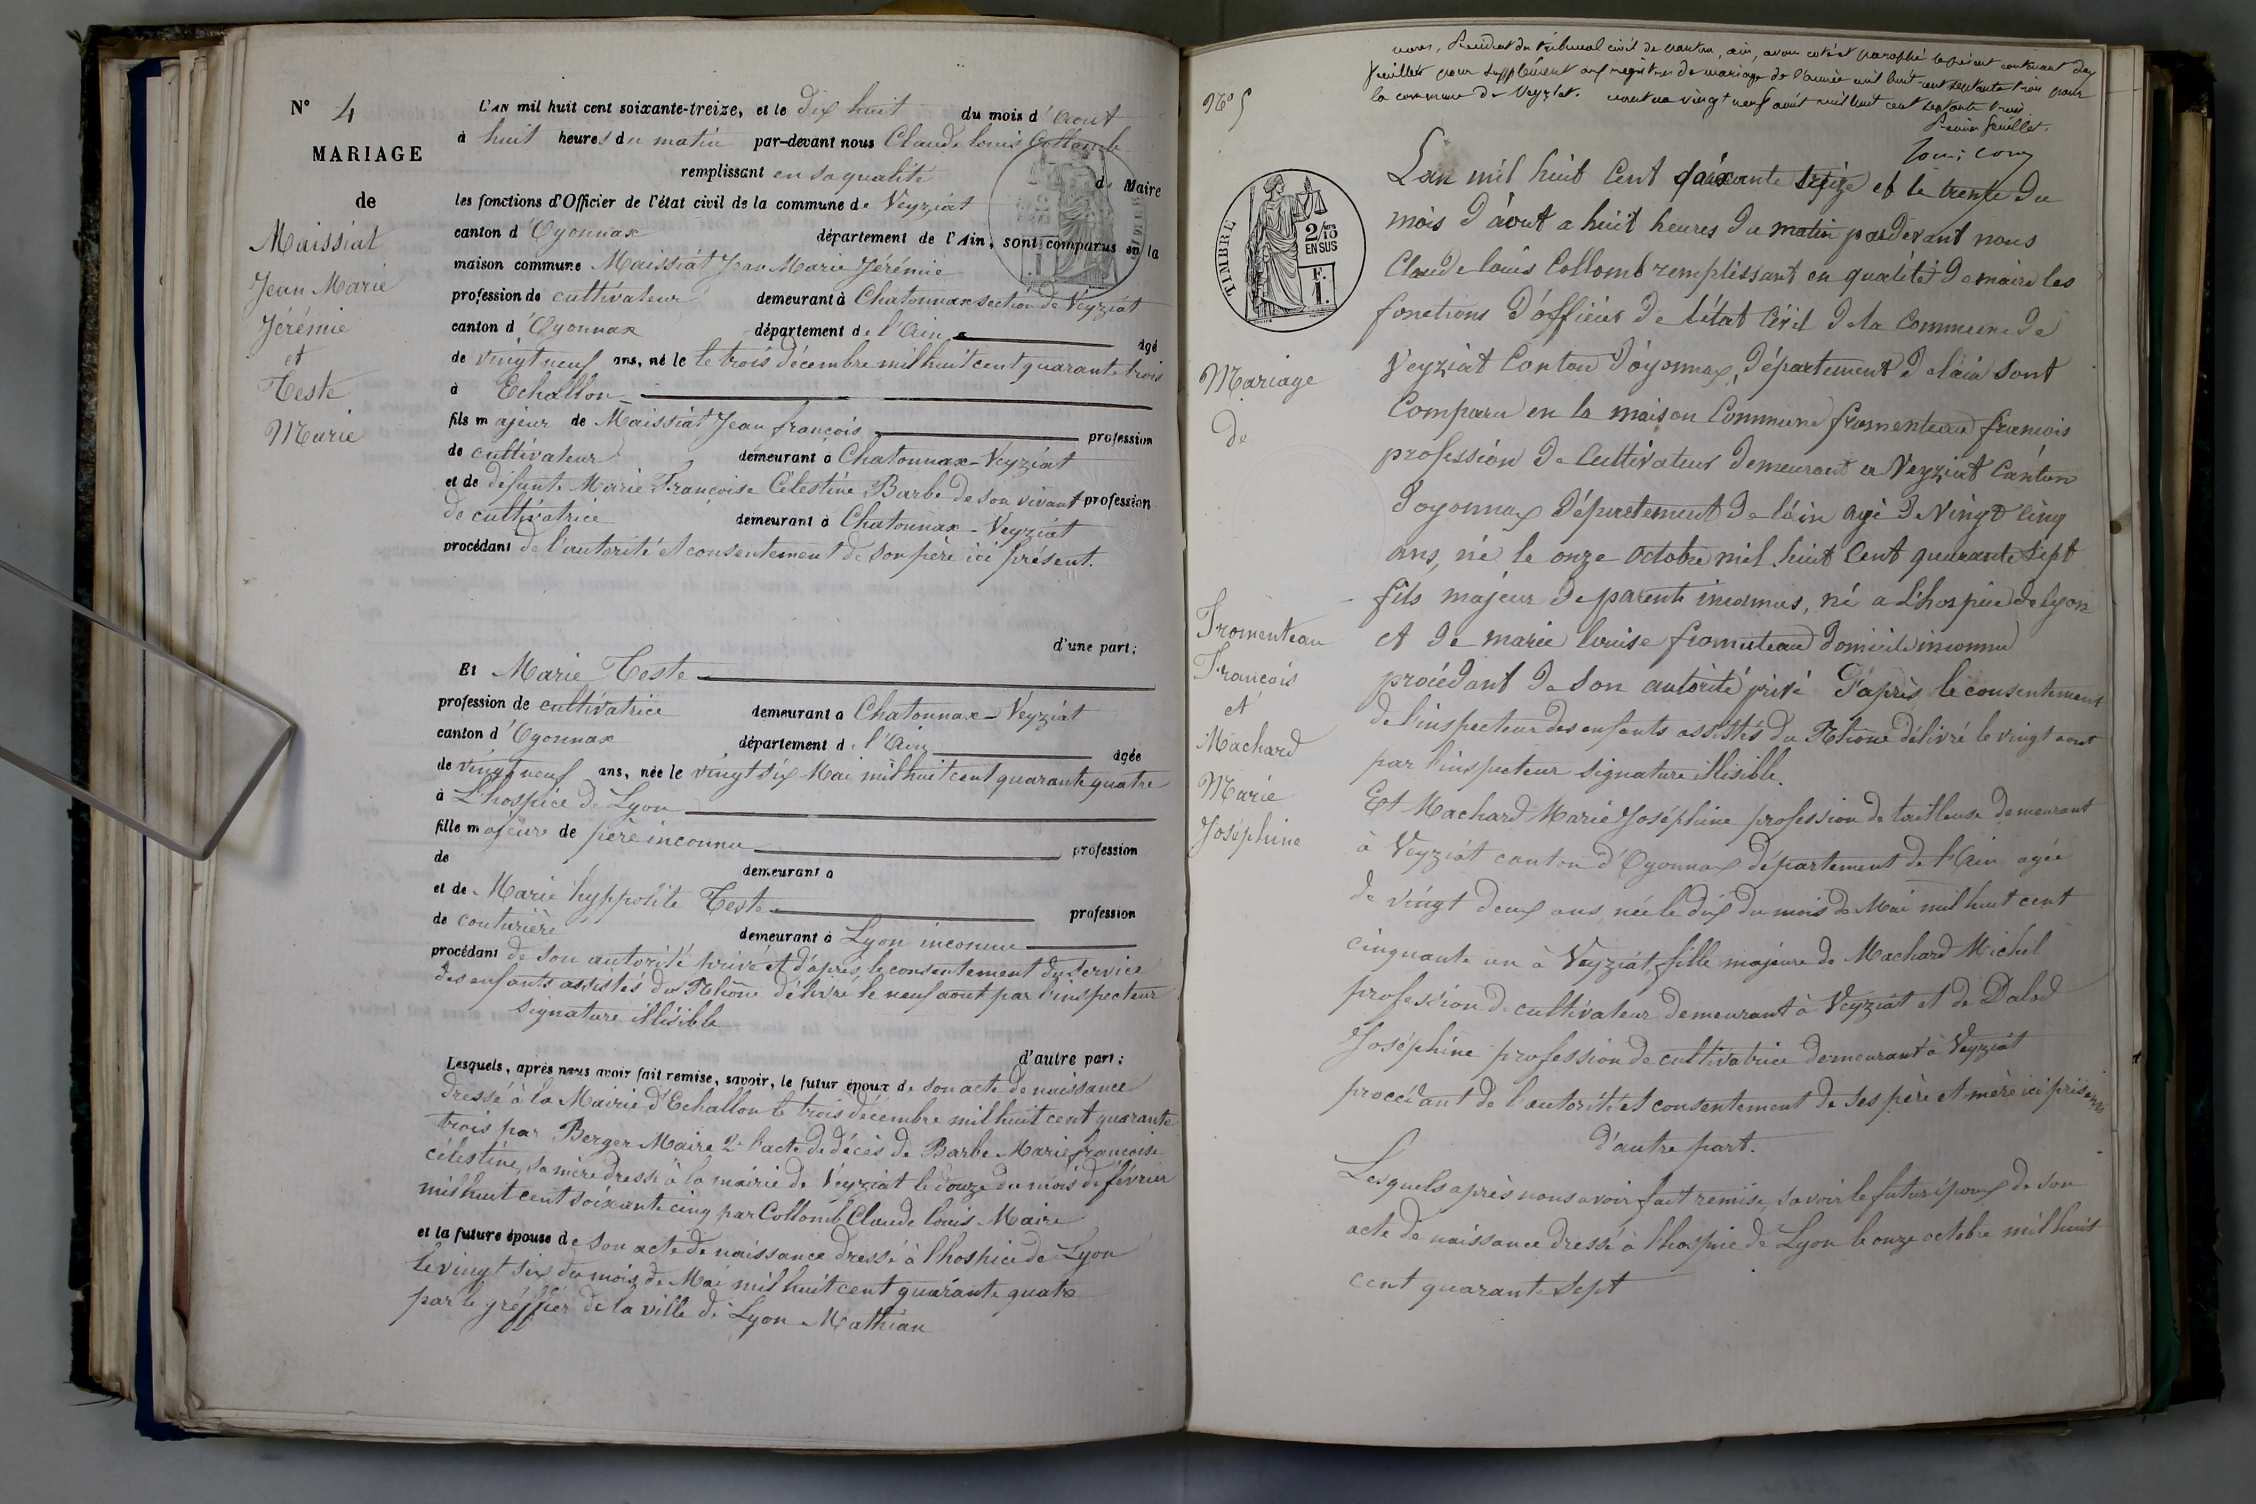 N° 4
MARIAGE
de
Maissiat
Jean Marie
Jérémie
et
Teste
Marie
L'AN mil huit cent soixante-treize, et le dix huit du mois d'aout
à huit heures du matin par-devant nous Claude louis Collomb
remplissant en sa qualité de Maire
les fonctions d'Officier de l'état civil de la commune de Veyziat
canton d'Oyonnax département de l'Ain, sont comparus en la
maison commune Maissiat Jean Marie Jérémie
profession de cultivateur demeurant à Chatonnax section de Veyziat
canton d'Oyonnax département de l'Ain agé
de vingt neuf ans, né le le trois décembre mil huit cent quarante trois
à Echallon
fils majeur de Maissiat Jean françois profession
de cultivateur demeurant à Chatonnax-Veyziat
et de défunte Marie Françoise Célestine Barbe de son vivant profession
de cultivatrice demeurant à Chatonnax-Veyziat
procédant de l'autorité et consentement de son père ici présent.
d'une part;
Et Marie Teste
profession de cultivatrice demeurant à Chatonnax-Veyziat
canton d'Oyonnax département de l'Ain agée
de vingt neuf ans, née le vingt six Mai mil huit cent quarante quatre
à L'hospice de Lyon
fille majeure de père inconnu profession
de demeurant à
et de Marie hyppolite Teste profession
de couturière demeurant à Lyon inconnue
procédant de son autorité privé et d'après le consentement du service
des enfants assistés du Rhône délivré le neuf aout par l'inspecteur
signature illisible
d'autre part;
Lesquels, après nous avoir fait remise, savoir, le futur époux de son acte de naissance
dressé à la Mairie d'Echallon le trois décembre mil huit cent quarante
trois par Berger Maire 2° l'acte de décès de Barbe Marie françoise
célestine, sa mère dressé à la mairie de Veyziat le douze du mois de février
mil huit cent soixante cinq par Collomb Claude louis Maire
et la future épouse de son acte de naissance dressé à l'hospice de Lyon
le vingt six du mois de Mai mil huit cent quarante quatre
par le gréffier de la ville de Lyon Mathian
Président du tribunal civil de nantua, ain, avons coté et paraphé le présent contenant dix
feuillets pour supplément aux registres de mariage de l'année mil huit cent septante trois pour
la commune de Veyziat. nantua vingt neuf août mil huit cent septante trois
Premier feuillet.
N° 5
TIMBRE
2/10
EN SUS
F.
1.
Mariage
de
Fromenteau
François
et
Machard
Marie
Joséphine
L'an mil huit Cent soixante treize et le trente du
mois d'aout a huit heures du matin pardevant nous
Claude louis Collomb remplissant en qualité de maire les
fonctions d'officier de l'état Civil de la Commune de
Veyziat Canton d'oyonnax, département de lain sont
Comparu en la maison Commune fromenteau francois
profession de Cultivateur demeurant a Veyziat Canton
d'oyonnax département de lain agé de Vingt Cinq
ans, né le onze octobre mil huit Cent quarante Sept
fils majeur de parents inconnus, né a L'hospice de lyon
et de marie louise fromenteau domicile inconnu
procédant de son autorité privé d'après le consentement
de l'inspecteur des enfants assistés du Rhône délivré le vingt aout
par l'inspecteur signature illisible.
Et Machard Marie Joséphine profession de tailleuse demeurant
à Veyziat canton d'Oyonnax département de l'Ain agée
de vingt deux ans née le dix du mois de Mai mil huit cent
cinquante un à Veyziat, fille majeure de Machard Michel
profession de cultivateur demeurant à Veyziat et de Dalod
Joséphine profession de cultivatrice demeurant à Veyziat
procédant de l'autorité et consentement de ses père et mère ici présents
d'autre part.
Lesquels après nous avoir fait remise, savoir le futur époux de son
acte de naissance dressé à l'hospice de Lyon le onze octobre mil huit
cent quarante sept